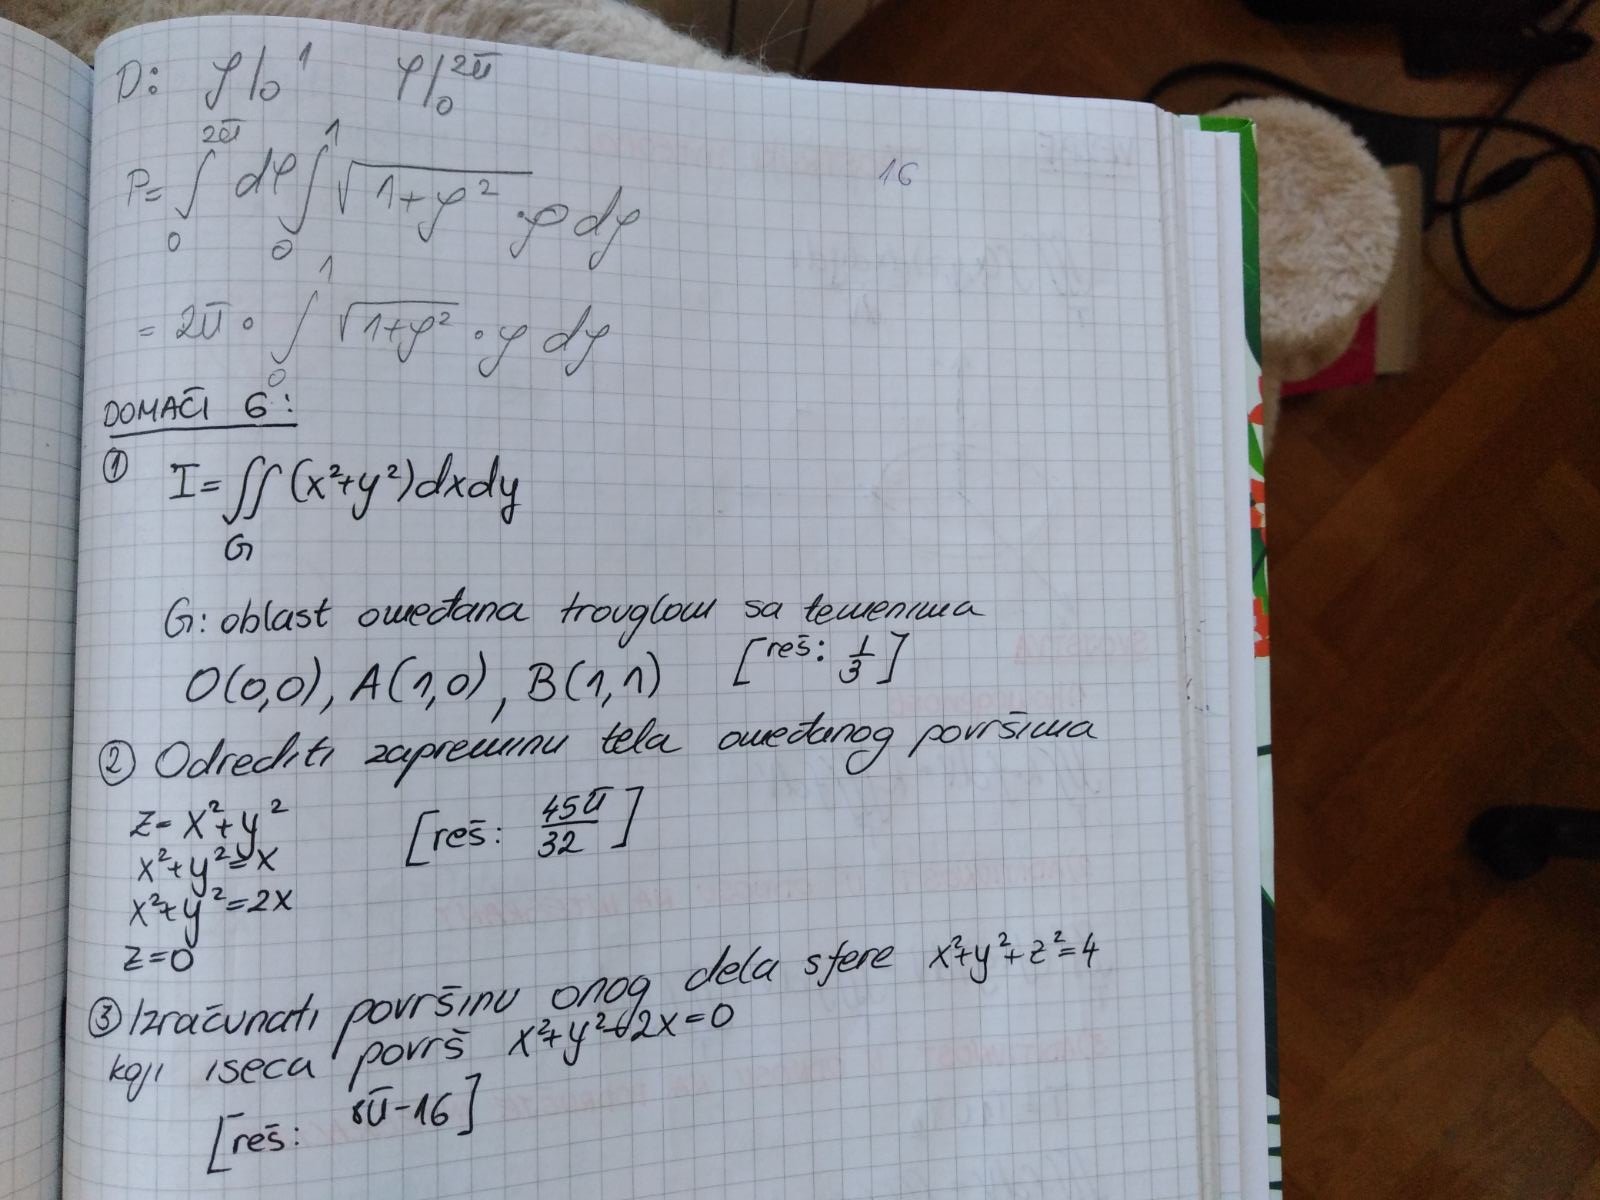 D: ρ|₀¹ φ|₀^2π
16
P= ∫₀^2π dφ ∫₀¹ √(1+ρ²) · ρ dρ
= 2π · ∫₀¹ √(1+ρ²) · ρ dρ
DOMAĆI 6:
① I = ∬_G (x²+y²) dxdy
G: oblast omeđana trouglom sa temenima
O(0,0), A(1,0), B(1,1) [reš: 1/3]
② Odrediti zapreminu tela omeđanog površima
z = x²+y² [reš: 45π/32]
x²+y²=x
x²+y²=2x
z=0
③ Izračunati površinu onog dela sfere x²+y²+z²=4
koji iseca površ x²+y²-2x=0
[reš: 8π-16]